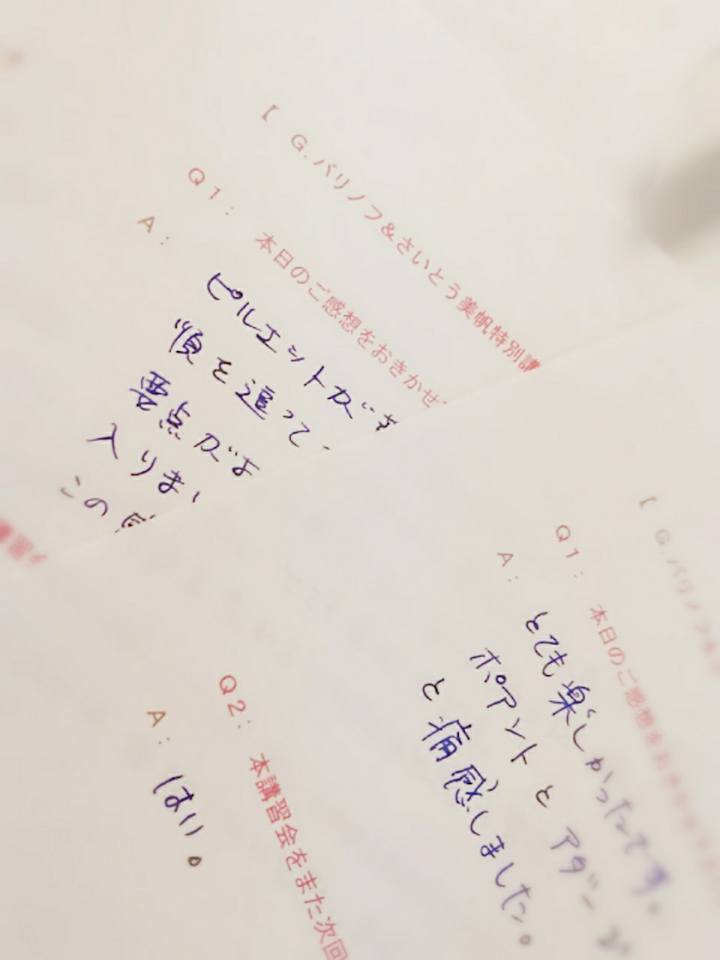 【 G.バリノフ&さいとう美帆特別講
Q1: 本日のご感想をおきかせ
A:
ピルエットが
順を追って
要点がよ
入りまし
この感
【 G.バリノフ&
Q1: 本日のご感想をおきかせ
A:
とても楽しかったです。
ポアントとアダージ
と痛感しました。
Q2: 本講習会をまた次回
A: はい。